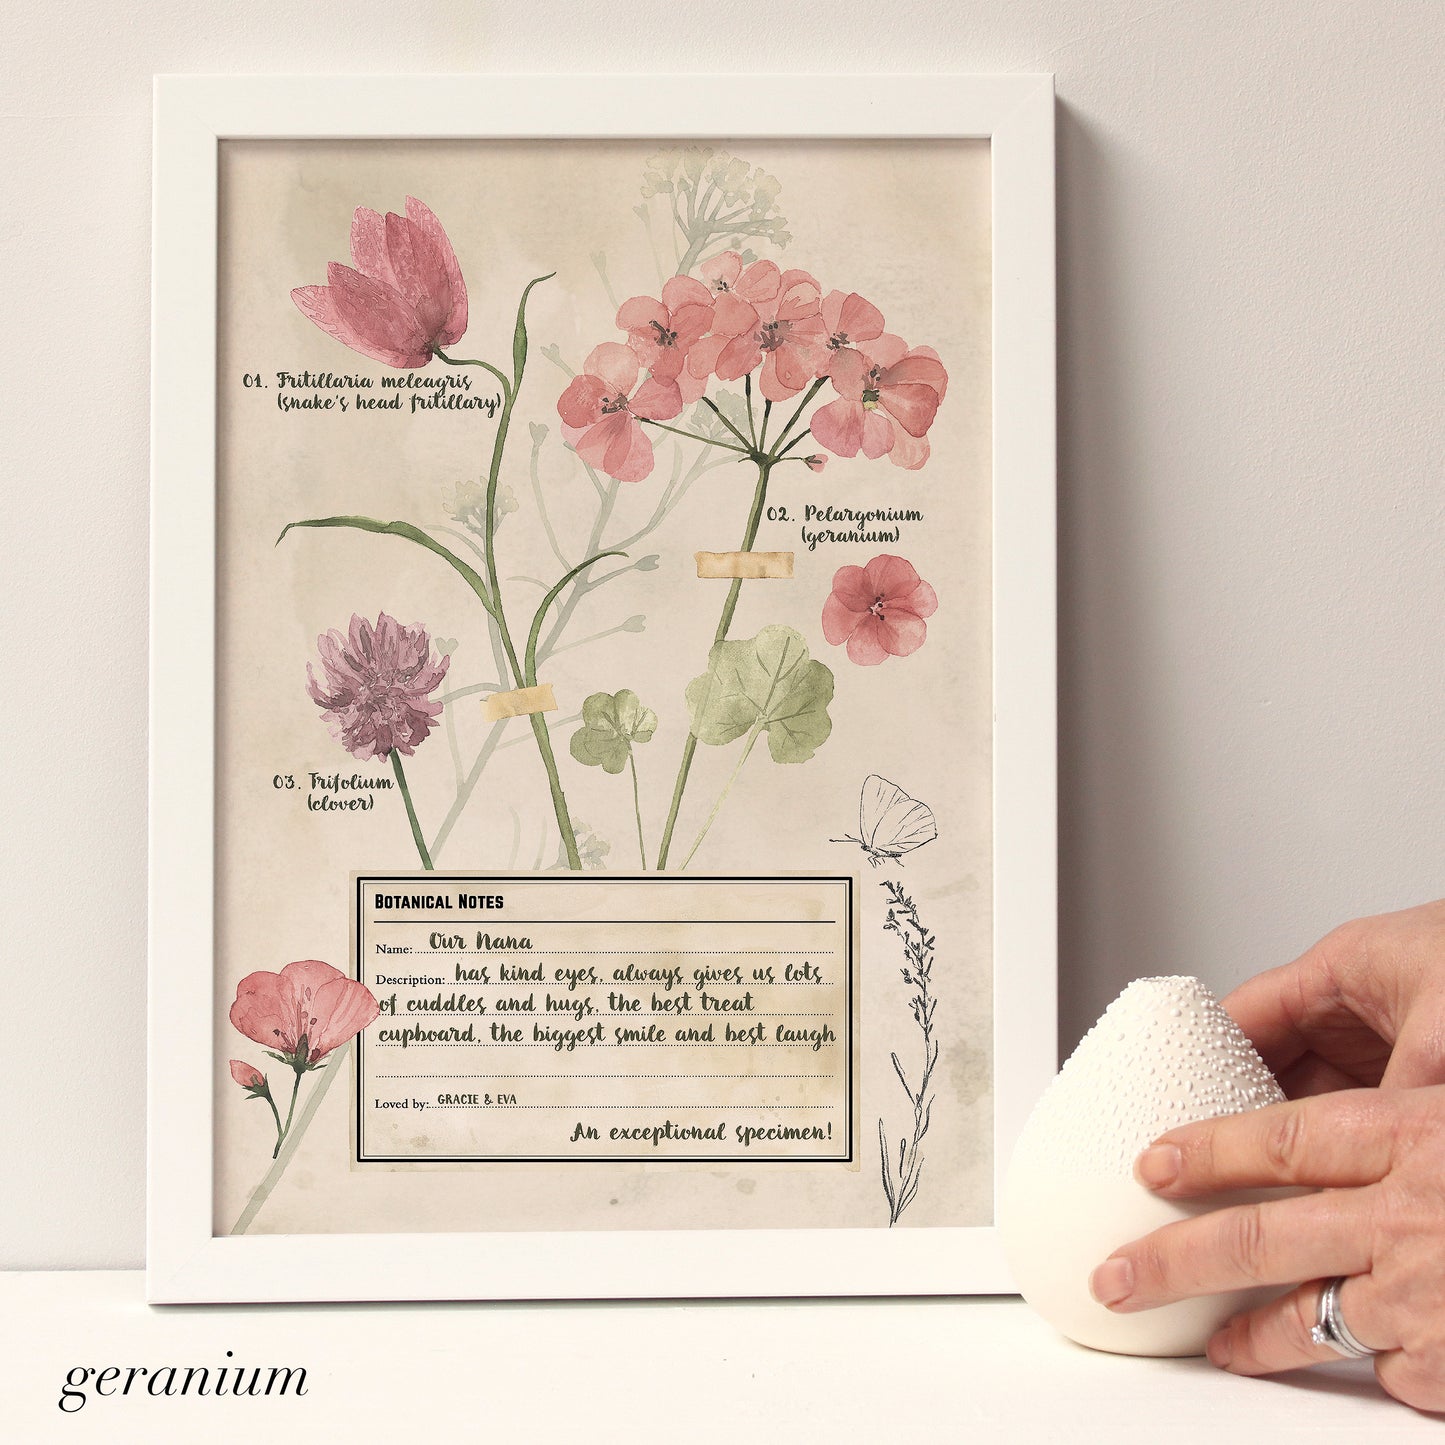 01. Fritillaria meleagris
(snake's head fritillary)
02. Pelargonium
(geranium)
03. Trifolium
(clover)
Botanical Notes
Name: Our Nana
Description: has kind eyes, always gives us lots
of cuddles and hugs, the best treat
cupboard, the biggest smile and best laugh
Loved by: GRACIE & EVA
An exceptional specimen!
geranium